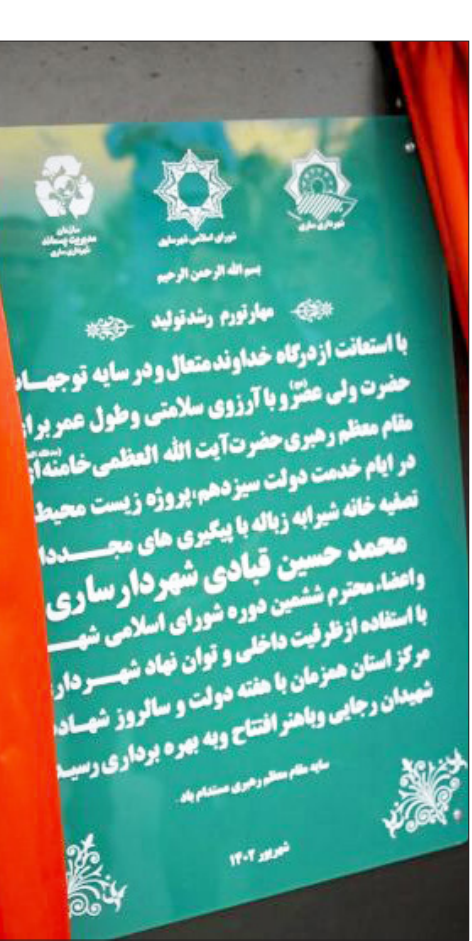 سازمان
مدیریت پسماند
شهرداری ساری
شورای اسلامی شهر ساری
شهرداری ساری
بسم الله الرحمن الرحیم
مهار تورم رشد تولید
با استعانت از درگاه خداوند متعال و در سایه توجهـا
حضرت ولی عصر و با آرزوی سلامتی و طول عمر برا
مقام معظم رهبری حضرت آیت الله العظمی خامنه ا
در ایام خدمت دولت سیزدهم، پروژه زیست محیط
تصفیه خانه شیرابه زباله با پیگیری های مجـــددا
محمد حسین قبادی شهردار ساری
و اعضاء محترم ششمین دوره شورای اسلامی شهـ
با استفاده از ظرفیت داخلی و توان نهاد شهـــردار
مرکز استان همزمان با هفته دولت و سالروز شهـاد
شهیدان رجایی و باهنر افتتاح و به بهره برداری رسیـد
سایه مقام معظم رهبری مستدام باد .
شهریور ۱۴۰۲